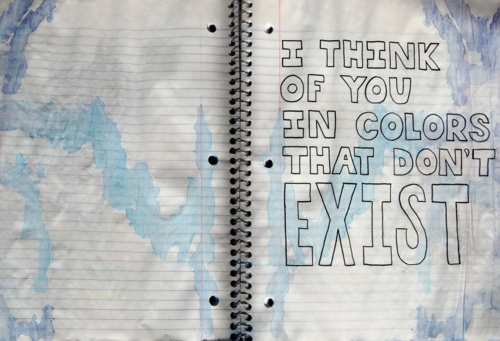 I THINK
OF YOU
IN COLORS
THAT DON'T
EXIST